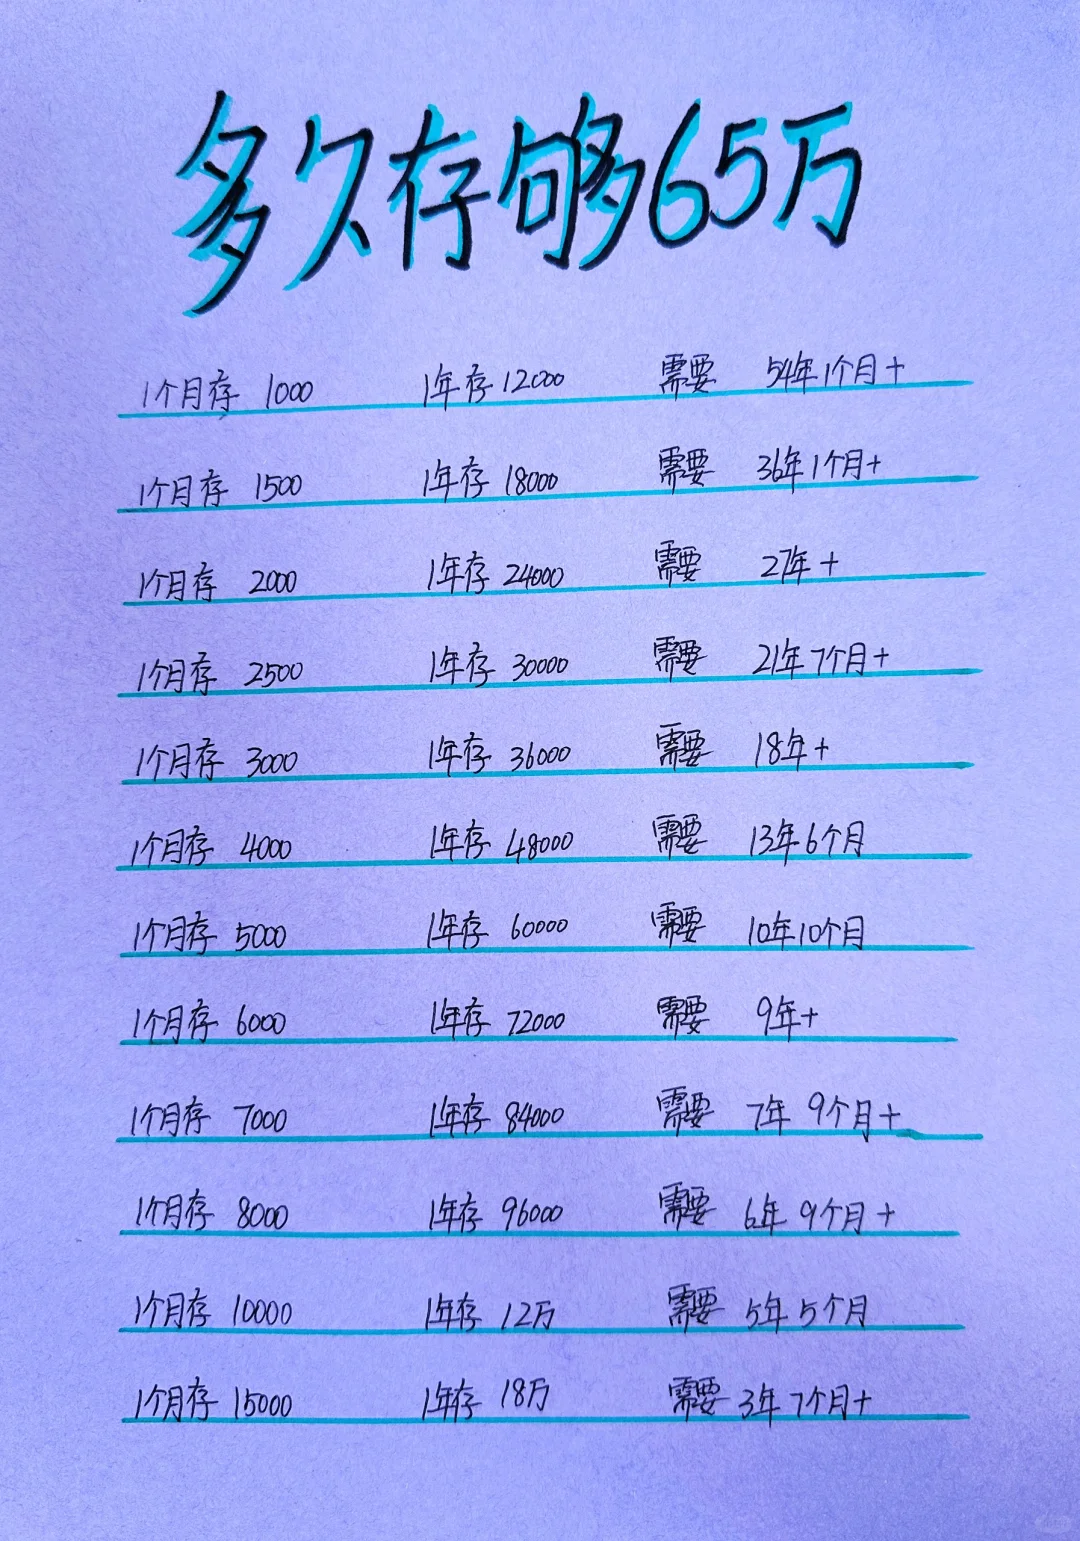 多久存够65万
1个月存 1000 1年存 12000 需要 54年1个月+
1个月存 1500 1年存 18000 需要 36年1个月+
1个月存 2000 1年存 24000 需要 27年+
1个月存 2500 1年存 30000 需要 21年7个月+
1个月存 3000 1年存 36000 需要 18年+
1个月存 4000 1年存 48000 需要 13年6个月
1个月存 5000 1年存 60000 需要 10年10个月
1个月存 6000 1年存 72000 需要 9年+
1个月存 7000 1年存 84000 需要 7年 9个月+
1个月存 8000 1年存 96000 需要 6年 9个月+
1个月存 10000 1年存 12万 需要 5年 5个月
1个月存 15000 1年存 18万 需要 3年 7个月+